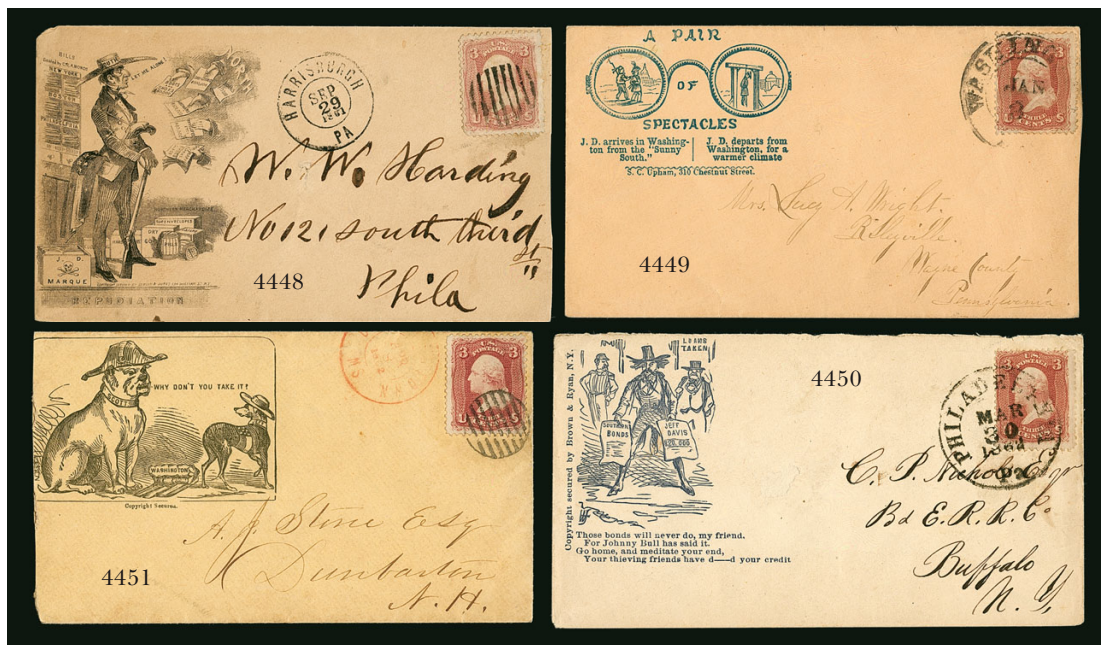 BILLS
NEW YORK
BOSTON
LET ME ALONE!
HARRISBURGH
SEP
29
1861
PA
3 3
U.S. POSTAGE
W. W. Harding
No 121 South third
st
Phila
DRY
GOODS
J. D.
MARQUE
REPUDIATION
4448
A PAIR
OF
SPECTACLES
J. D. arrives in Washing-
ton from the "Sunny
South."
J. D. departs from
Washington, for a
warmer climate
S. C. Upham, 310 Chestnut Street.
WASHIN
JAN
3 3
THREE
CENTS
Mrs. Lucy A. Wright.
Rileyville.
Wayne County
Pennsylvania.
4449
WHY DON'T YOU TAKE IT?
SCOTT
WASHINGTON
Copyright Secured.
3 3
U.S.
POSTAGE
A. J. Stone Esq
Dunbarton
N. H.
4451
Copyright secured by Brown & Ryan, N.Y.
LOANS
TAKEN
SOUTHERN
BONDS
JEFF
DAVIS
Those bonds will never do, my friend.
For Johnny Bull has said it.
Go home, and meditate your end,
Your thieving friends have d——d your credit
4450
3 3
U.S.
POSTAGE
PHILADELP
MAR
30
PA
C. P. Nichols Esqr
Bd E. R. R. Co.
Buffalo
N. Y.